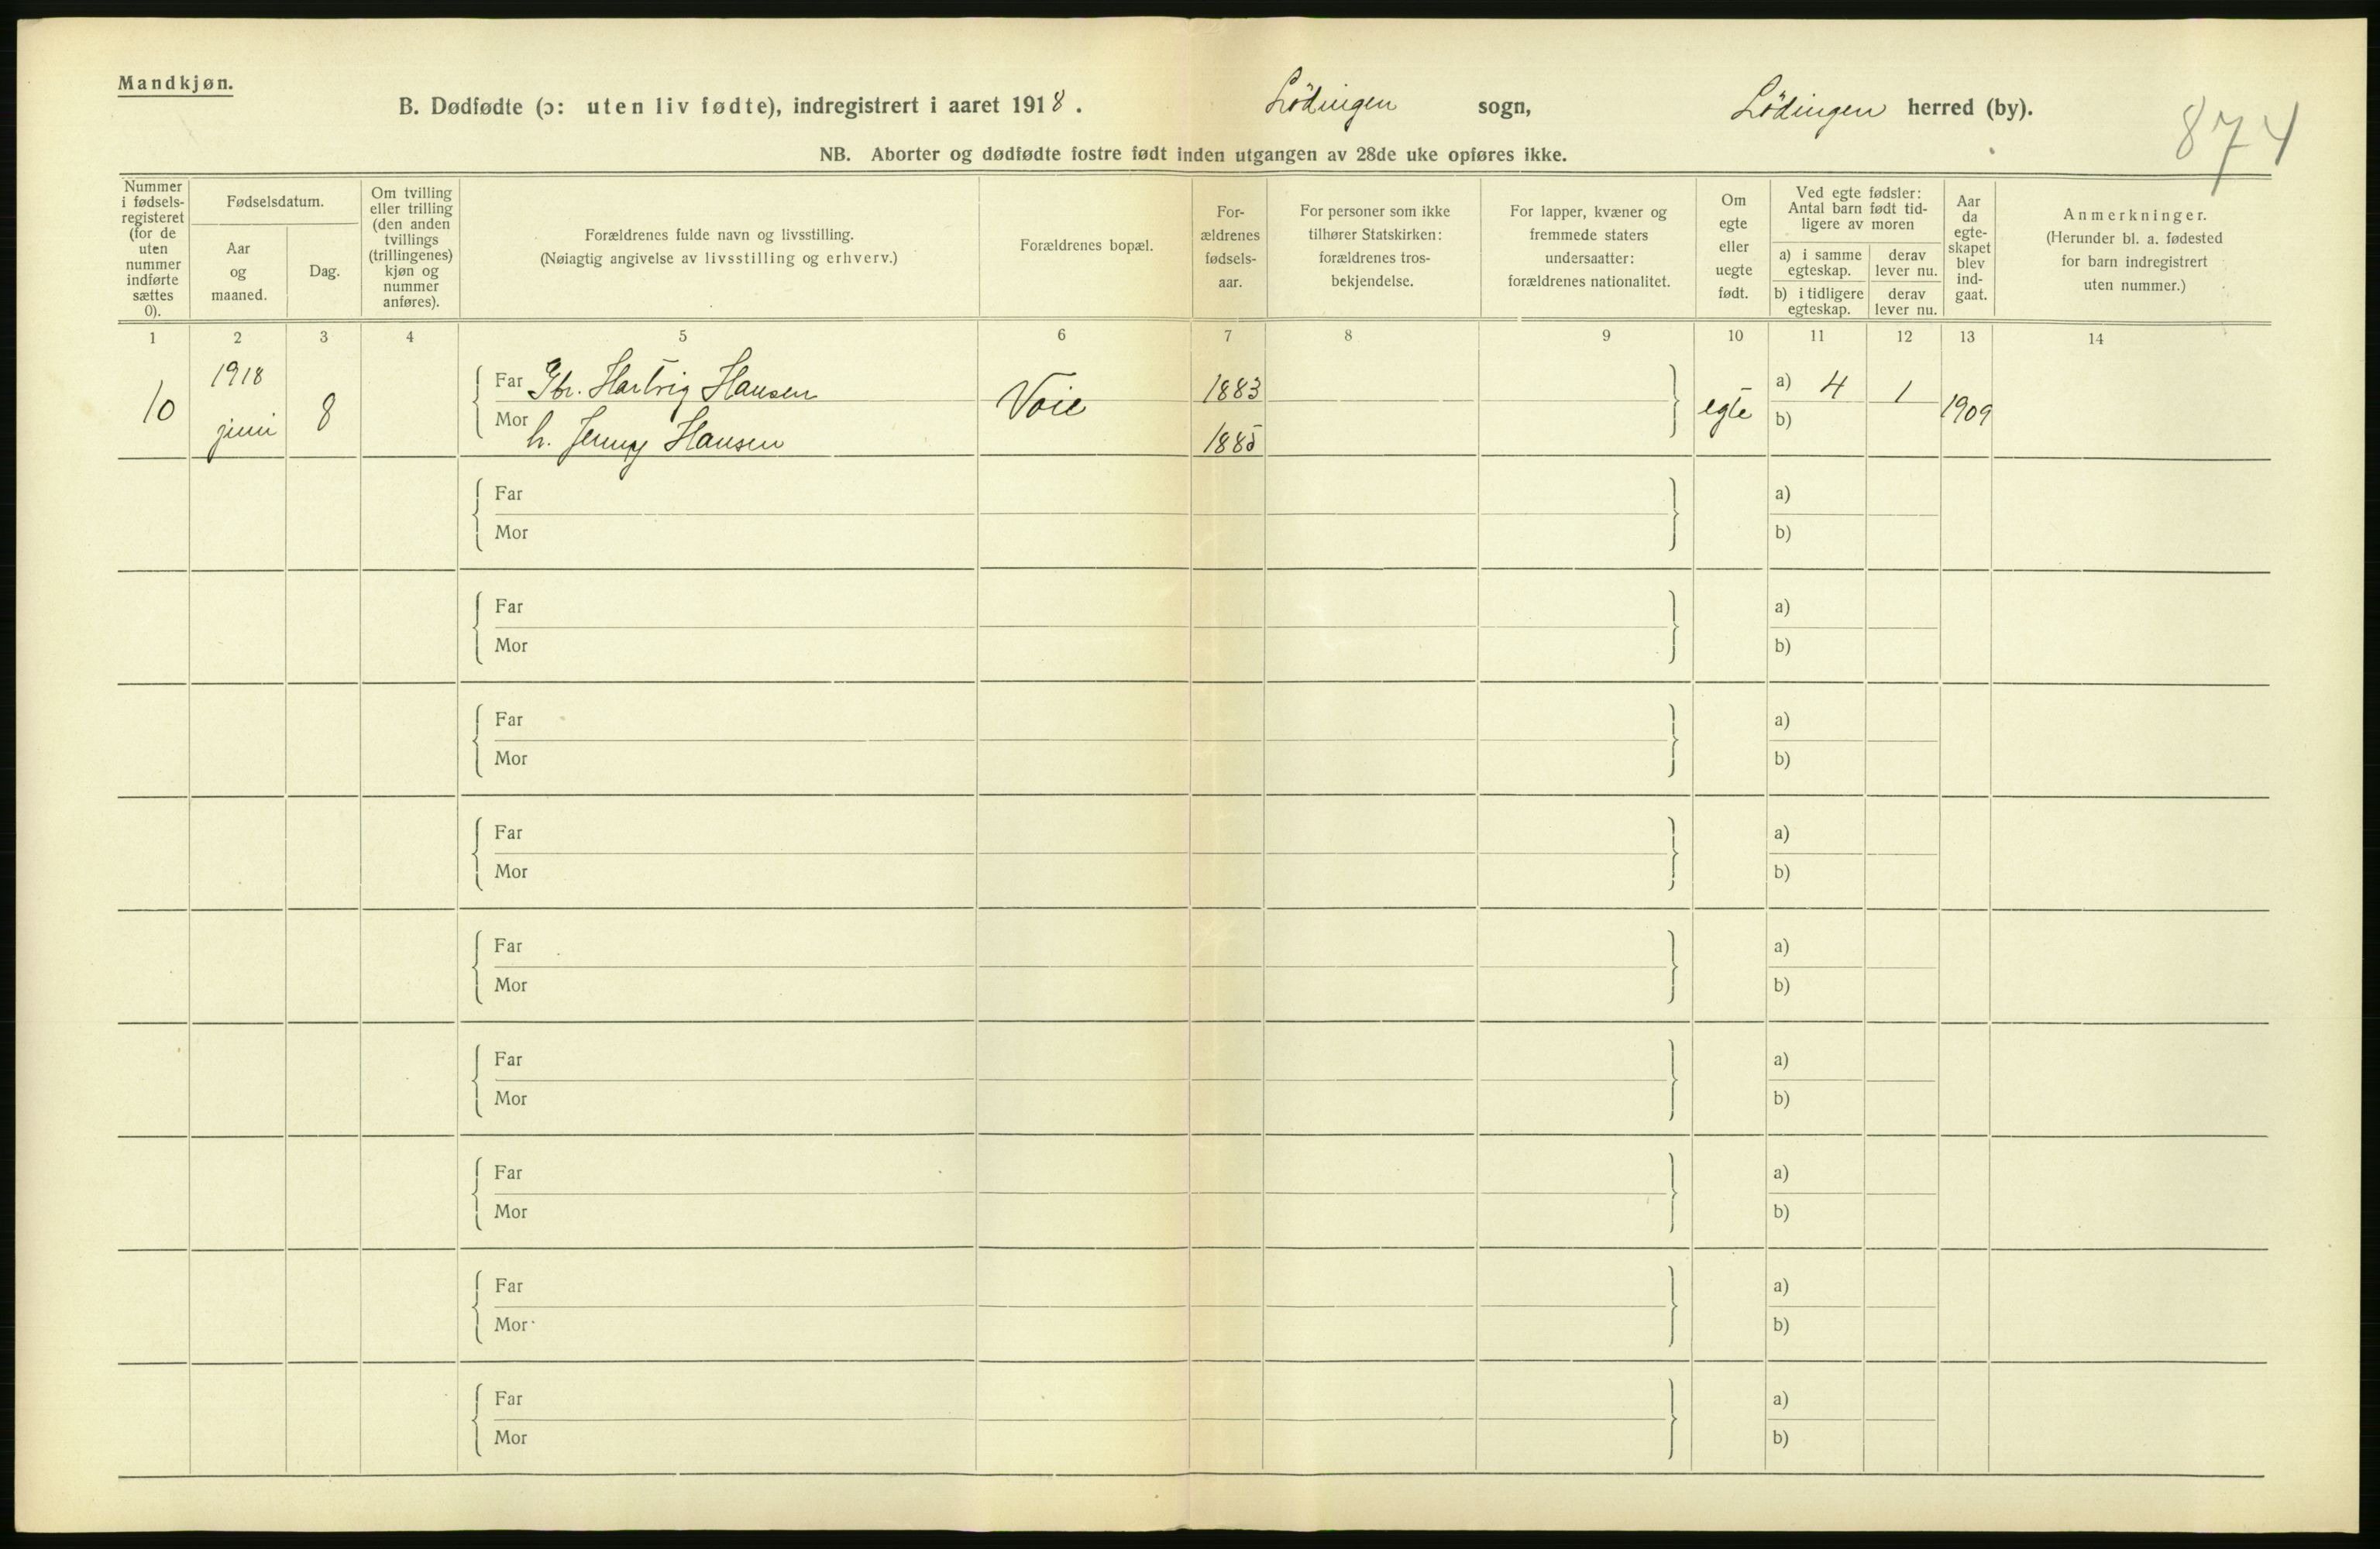 Mandkjøn.
B. Dødfødte (ɔ: uten liv fødte), indregistrert i aaret 1918. Lödingen sogn, Lödingen herred (by).
874
NB. Aborter og dødfødte fostre født inden utgangen av 28de uke opføres ikke.
Nummer i fødsels-registeret (for de uten nummer indførte sættes 0).
Fødselsdatum.
Aar og maaned.
Dag.
Om tvilling eller trilling (den anden tvillings (trillingenes) kjøn og nummer anføres).
Forældrenes fulde navn og livsstilling.
(Nøiagtig angivelse av livsstilling og erhverv.)
Forældrenes bopæl.
For-ældrenes fødsels-aar.
For personer som ikke tilhører Statskirken: forældrenes tros-bekjendelse.
For lapper, kvæner og fremmede staters undersaatter: forældrenes nationalitet.
Om egte eller uegte født.
Ved egte fødsler: Antal barn født tid-ligere av moren
a) i samme egteskap.
derav lever nu.
b) i tidligere egteskap.
derav lever nu.
Aar da egte-skapet blev ind-gaat.
Anmerkninger.
(Herunder bl. a. fødested for barn indregistrert uten nummer.)
1 2 3 4 5 6 7 8 9 10 11 12 13 14
10 1918 juni 8 Far Hartvig Hansen Voie 1883 egte a) 4 1 1909
Mor h. Jenny Hansen 1885 b)
Far a)
Mor b)
Far a)
Mor b)
Far a)
Mor b)
Far a)
Mor b)
Far a)
Mor b)
Far a)
Mor b)
Far a)
Mor b)
Far a)
Mor b)
Far a)
Mor b)